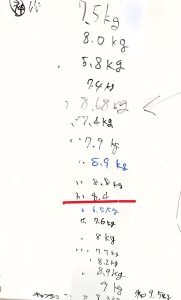 7.5kg
8.0 kg
5.8 kg
7.4 kg
8.68 kg
7.4 kg
7.9 kg
" 5.9 kg
" 8.8 kg
8.4
6.5kg
7.6 kg
" 8 kg
" 7.7 kg
" 8.2 kg
" 8.9 kg
9 kg
9.5kg